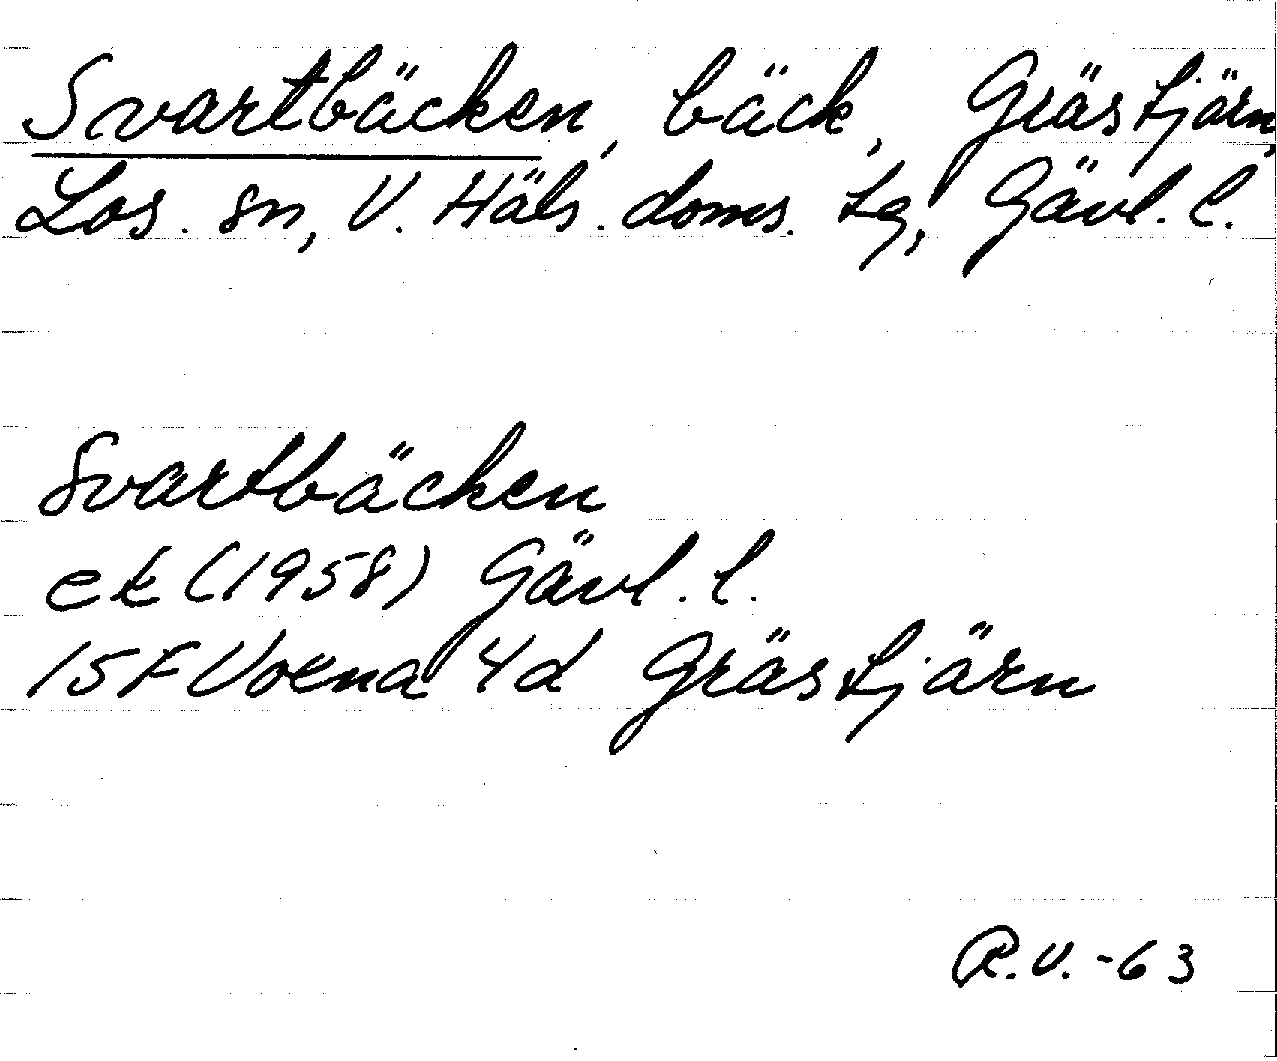 Svartbäcken, bäck, Grästjärn,
Los. sn, V. Häls. doms. tg, Gävl. l.
Svartbäcken
ek (1958) Gävl. l.
15F Voxna 4d Grästjärn
R.V. -63